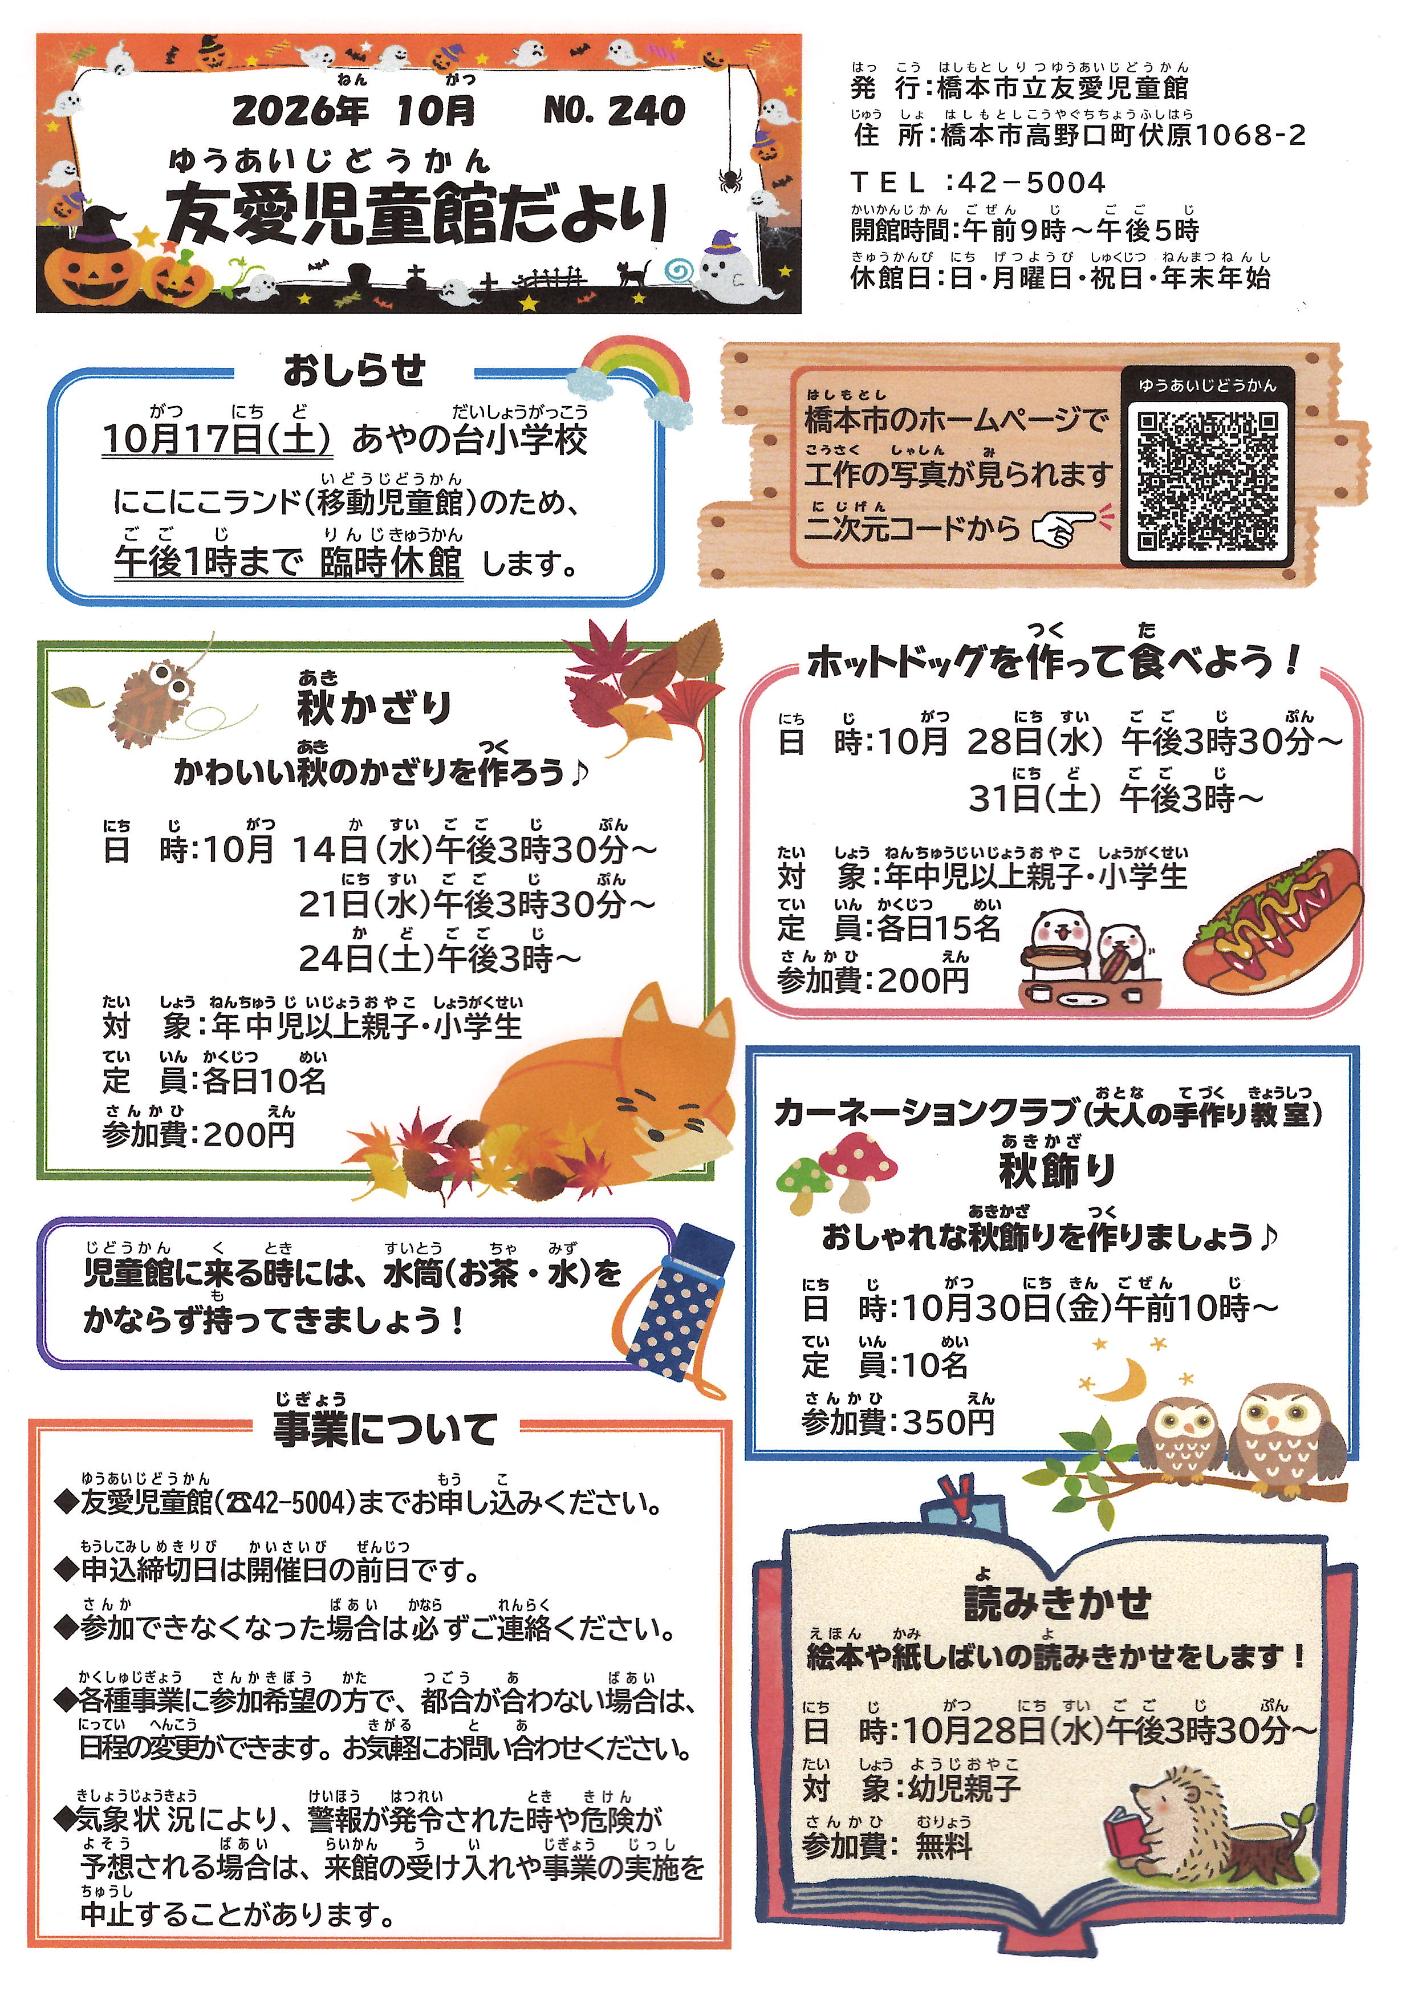 2026年 10月 NO. 240
友愛児童館だより
発 行：橋本市立友愛児童館
住 所：橋本市高野口町伏原1068-2
TEL ：42－5004
開館時間：午前9時～午後5時
休館日：日・月曜日・祝日・年末年始
おしらせ
10月17日(土) あやの台小学校
にこにこランド(移動児童館)のため、
午後1時まで 臨時休館 します。
橋本市のホームページで
工作の写真が見られます
二次元コードから
ゆうあいじどうかん
秋かざり
かわいい秋のかざりを作ろう♪
日 時：10月 14日(水)午後3時30分～
21日(水)午後3時30分～
24日(土)午後3時～
対 象：年中児以上親子・小学生
定 員：各日10名
参加費：200円
ホットドッグを作って食べよう！
日 時：10月 28日(水) 午後3時30分～
31日(土) 午後3時～
対 象：年中児以上親子・小学生
定 員：各日15名
参加費：200円
カーネーションクラブ(大人の手作り教室)
秋飾り
おしゃれな秋飾りを作りましょう♪
日 時：10月30日(金)午前10時～
定 員：10名
参加費：350円
児童館に来る時には、水筒(お茶・水)を
かならず持ってきましょう！
事業について
◆友愛児童館(☎42-5004)までお申し込みください。
◆申込締切日は開催日の前日です。
◆参加できなくなった場合は必ずご連絡ください。
◆各種事業に参加希望の方で、都合が合わない場合は、
日程の変更ができます。お気軽にお問い合わせください。
◆気象状況により、警報が発令された時や危険が
予想される場合は、来館の受け入れや事業の実施を
中止することがあります。
読みきかせ
絵本や紙しばいの読みきかせをします！
日 時：10月28日(水)午後3時30分～
対 象：幼児親子
参加費： 無料